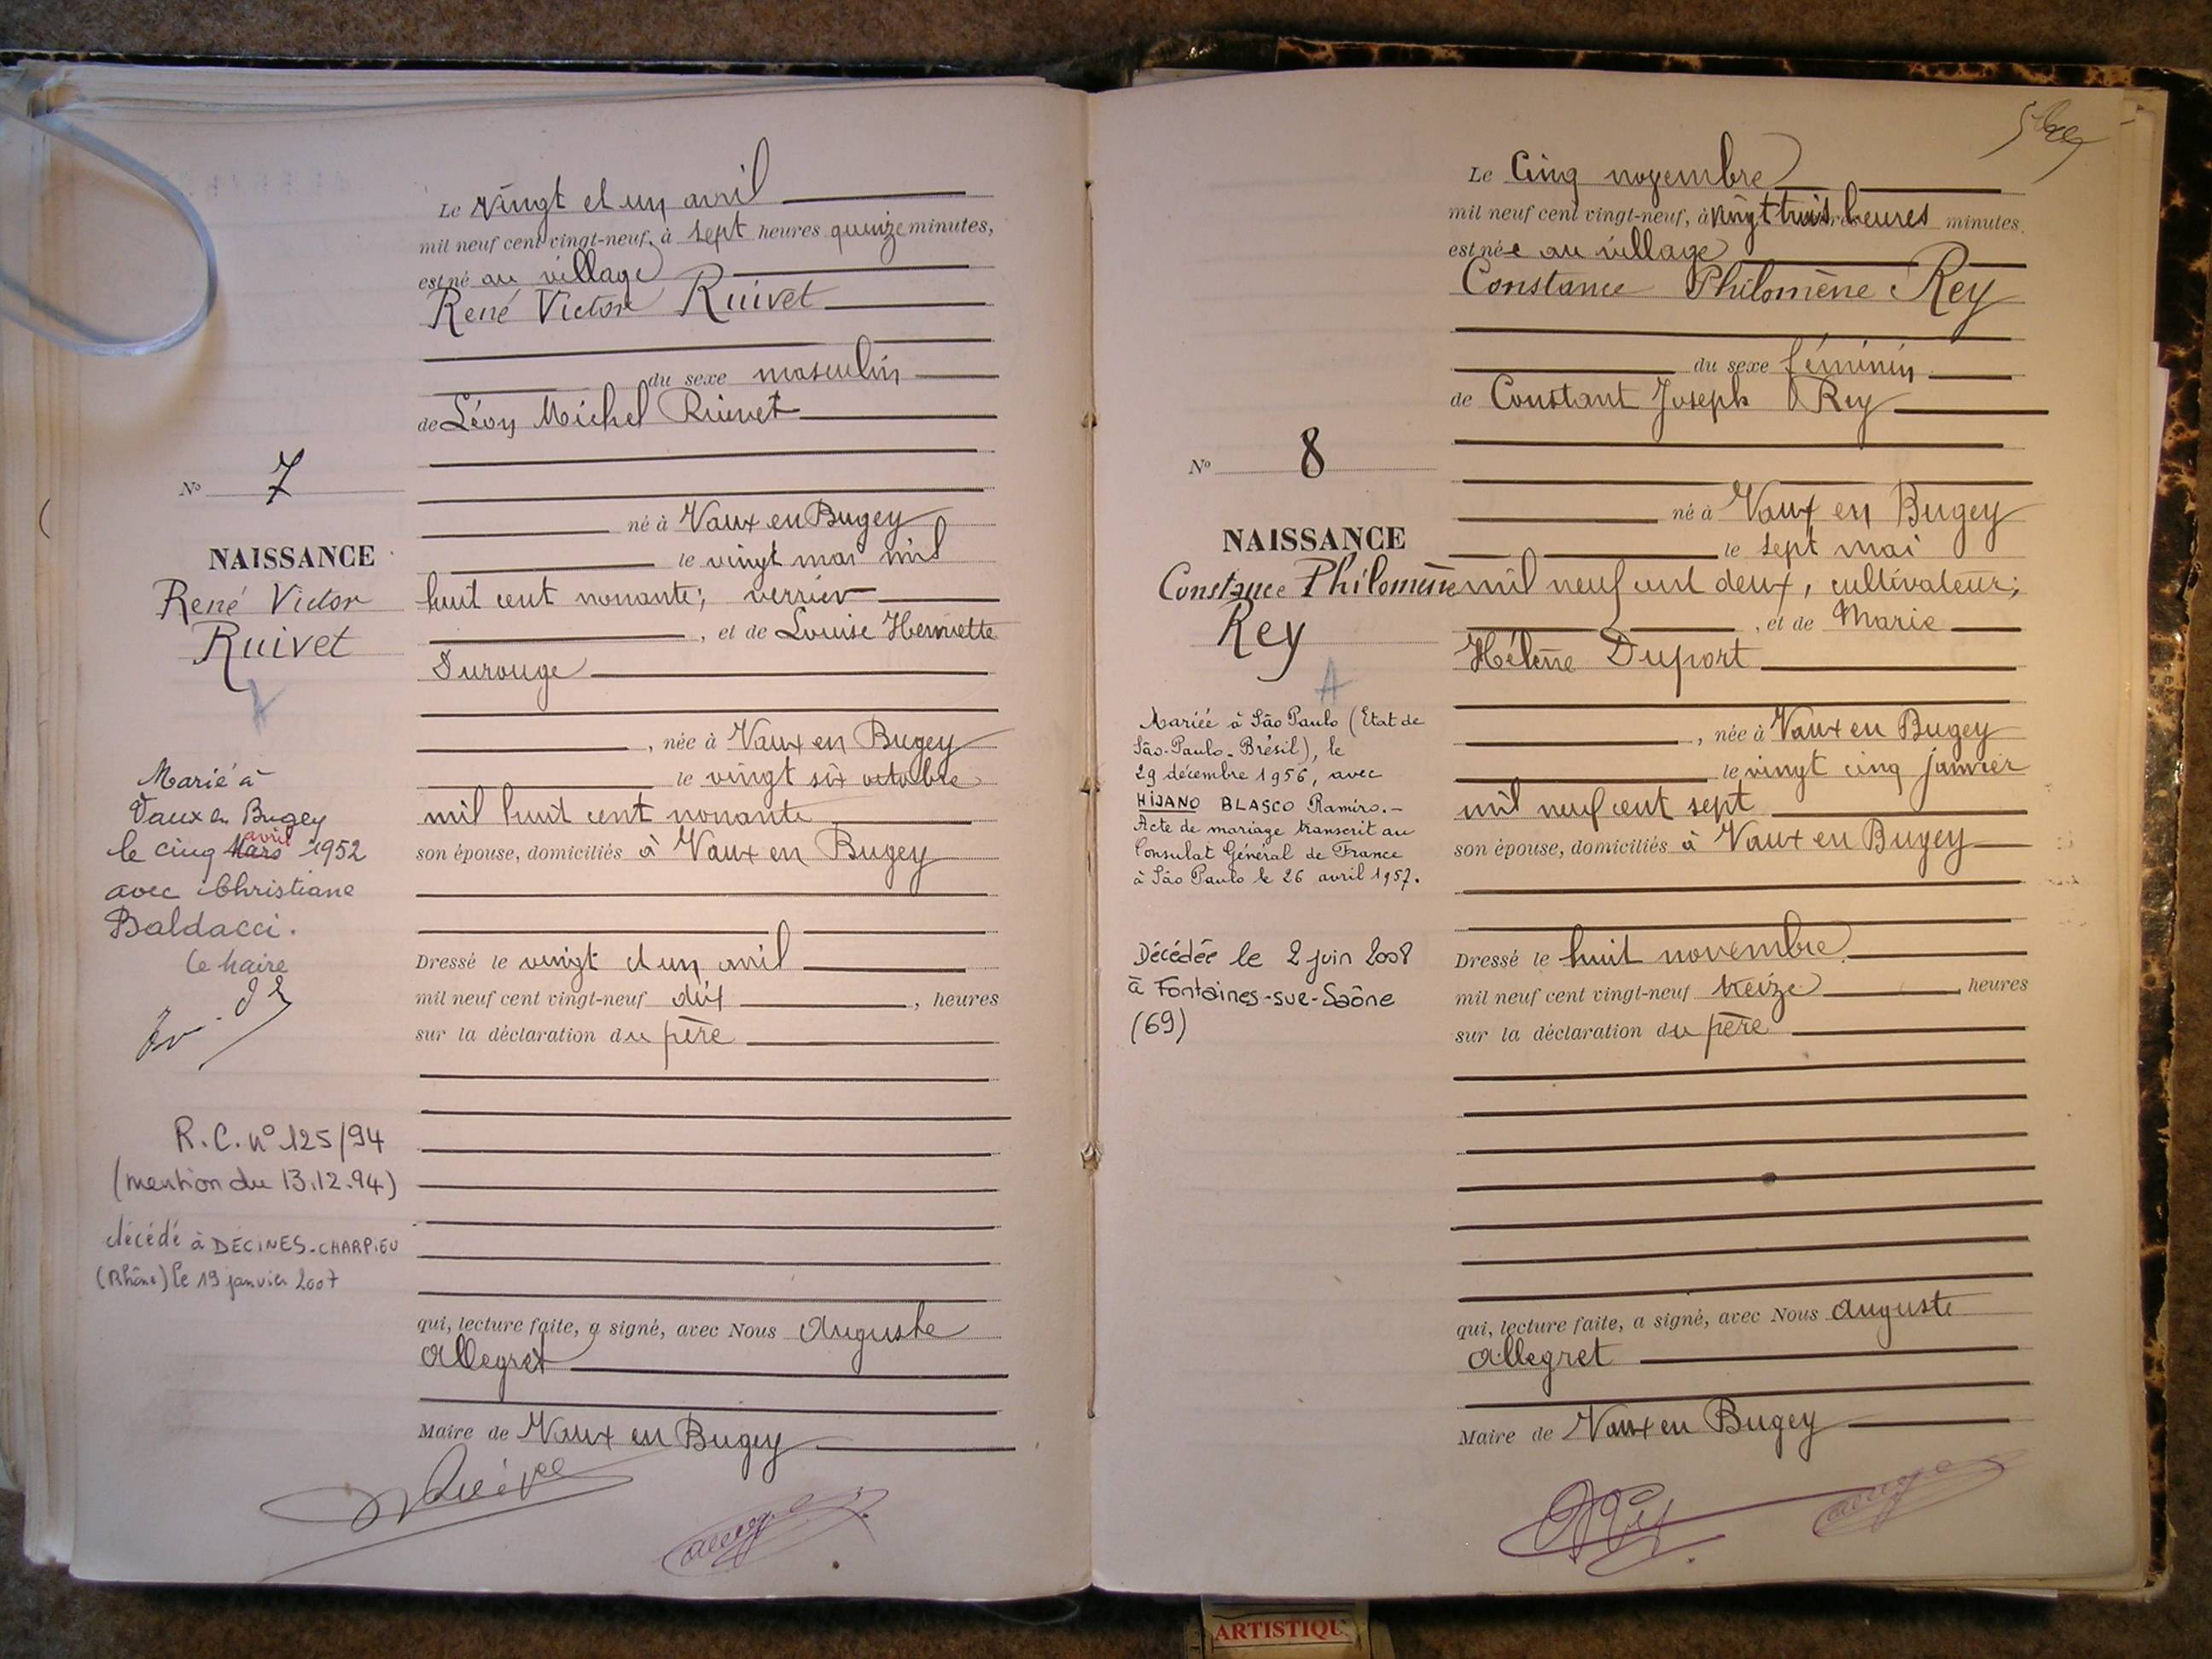 Le vingt et un avril
mil neuf cent vingt-neuf, à sept heures quinze minutes,
est né au village
René Victor Ruivet
du sexe masculin
de Léon Michel Ruivet
né à Vaux en Bugey
le vingt mai mil
huit cent nonante; verrier
, et de Louise Henriette
Durouge
, née à Vaux en Bugey
le vingt six octobre
mil huit cent nonante
son épouse, domiciliés à Vaux en Bugey
Dressé le vingt et un avril
mil neuf cent vingt-neuf dix, heures
sur la déclaration du père
qui, lecture faite, a signé, avec Nous Auguste
Allegret
Maire de Vaux en Bugey
No 7
NAISSANCE
René Victor
Ruivet
A
Marié à
Vaux en Bugey
avril
le cinq Mars 1952
avec Christiane
Baldacci.
le Maire
R.C. n° 125/94
(mention du 13.12.94)
décédé à DÉCINES-CHARPIEU
(Rhône) le 19 janvier 2007
Le Cinq novembre
mil neuf cent vingt-neuf, à vingt trois heures minutes
est née au village
Constance Philomène Rey
du sexe féminin
de Constant Joseph Rey
né à Vaux en Bugey
le sept mai
mil neuf cent deux, cultivateur;
, et de Marie
Hélène Duport
, née à Vaux en Bugey
le vingt cinq janvier
mil neuf cent sept
son épouse, domiciliés à Vaux en Bugey
Dressé le huit novembre
mil neuf cent vingt-neuf treize heures
sur la déclaration du père
qui, lecture faite, a signé, avec Nous Auguste
Allegret
Maire de Vaux en Bugey
No 8
NAISSANCE
Constance Philomène
Rey
A
Mariée à São Paulo (Etat de
São-Paulo-Brésil), le
29 décembre 1956, avec
HIJANO BLASCO Ramiro.-
Acte de mariage transcrit au
Consulat Général de France
à São Paulo le 26 avril 1957.
Décédée le 2 juin 2008
à Fontaines-sur-Saône
(69)
ARTISTIQU